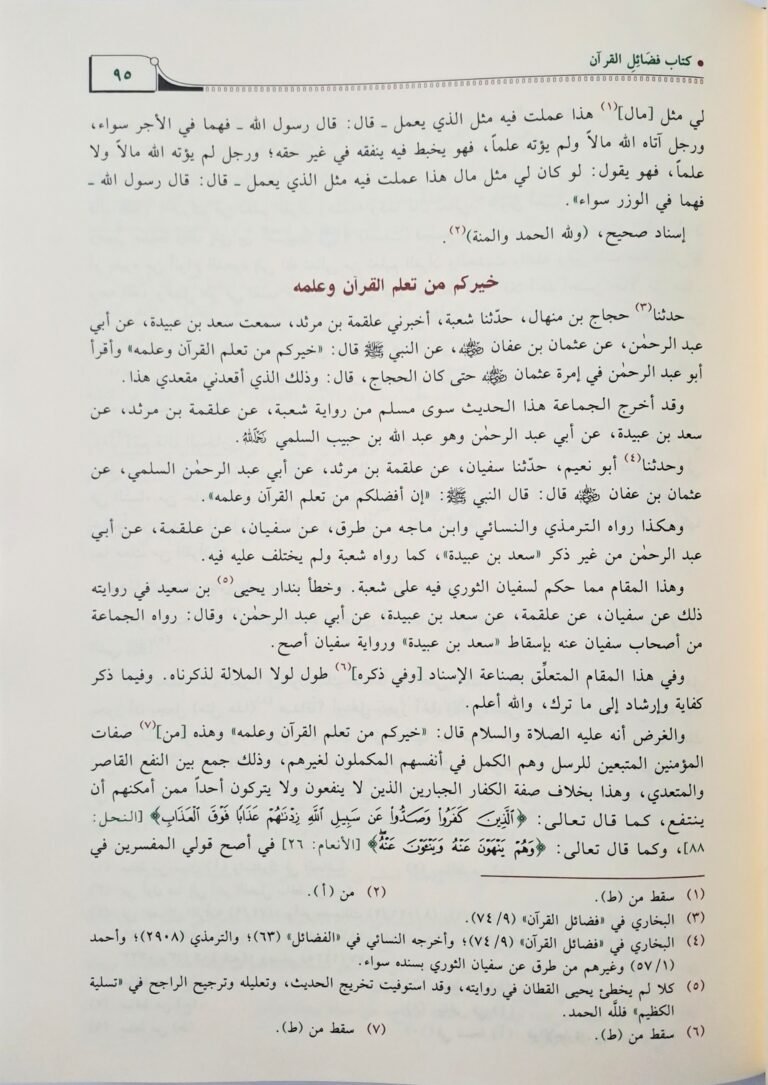 كتاب فضَائِل القرآن
٩٥
لي مثل [مال](١) هذا عملت فيه مثل الذي يعمل ـ قال: قال رسول الله ـ فهما في الأجر سواء،
ورجل آتاه الله مالاً ولم يؤته علماً، فهو يخبط فيه ينفقه في غير حقه؛ ورجل لم يؤته الله مالاً ولا
علماً، فهو يقول: لو كان لي مثل مال هذا عملت فيه مثل الذي يعمل ـ قال: قال رسول الله ـ
فهما في الوزر سواء».
إسناد صحيح، (ولله الحمد والمنة)(٢).
خيركم من تعلم القرآن وعلمه
حدثنا(٣) حجاج بن منهال، حدّثنا شعبة، أخبرني علقمة بن مرثد، سمعت سعد بن عبيدة، عن أبي
عبد الرحمٰن، عن عثمان بن عفان رضي الله عنه، عن النبي ﷺ قال: «خيركم من تعلم القرآن وعلمه» وأقرأ
أبو عبد الرحمٰن في إمرة عثمان رضي الله عنه حتى كان الحجاج، قال: وذلك الذي أقعدني مقعدي هذا.
وقد أخرج الجماعة هذا الحديث سوى مسلم من رواية شعبة، عن علقمة بن مرثد، عن
سعد بن عبيدة، عن أبي عبد الرحمٰن وهو عبد الله بن حبيب السلمي رحمه الله.
وحدثنا(٤) أبو نعيم، حدّثنا سفيان، عن علقمة بن مرثد، عن أبي عبد الرحمٰن السلمي، عن
عثمان بن عفان رضي الله عنه قال: قال النبي ﷺ: «إن أفضلكم من تعلم القرآن وعلمه».
وهكذا رواه الترمذي والنسائي وابن ماجه من طرق، عن سفيان، عن علقمة، عن أبي
عبد الرحمٰن من غير ذكر «سعد بن عبيدة»، كما رواه شعبة ولم يختلف عليه فيه.
وهذا المقام مما حكم لسفيان الثوري فيه على شعبة. وخطأ بندار يحيى(٥) بن سعيد في روايته
ذلك عن سفيان، عن علقمة، عن سعد بن عبيدة، عن أبي عبد الرحمٰن، وقال: رواه الجماعة
من أصحاب سفيان عنه بإسقاط «سعد بن عبيدة» ورواية سفيان أصح.
وفي هذا المقام المتعلِّق بصناعة الإسناد [وفي ذكره](٦) طول لولا الملالة لذكرناه. وفيما ذكر
كفاية وإرشاد إلى ما ترك، والله أعلم.
والغرض أنه عليه الصلاة والسلام قال: «خيركم من تعلم القرآن وعلمه» وهذه [من](٧) صفات
المؤمنين المتبعين للرسل وهم الكمل في أنفسهم المكملون لغيرهم، وذلك جمع بين النفع القاصر
والمتعدي، وهذا بخلاف صفة الكفار الجبارين الذين لا ينفعون ولا يتركون أحداً ممن أمكنهم أن
ينتفع، كما قال تعالى: ﴿ٱلَّذِينَ كَفَرُوا۟ وَصَدُّوا۟ عَن سَبِيلِ ٱللَّهِ زِدْنَٰهُمْ عَذَابًا فَوْقَ ٱلْعَذَابِ﴾ [النحل:
٨٨]، وكما قال تعالى: ﴿وَهُمْ يَنْهَوْنَ عَنْهُ وَيَنْـَٔوْنَ عَنْهُ﴾ [الأنعام: ٢٦] في أصح قولي المفسرين في
(١) سقط من (ط). (٢) من (أ).
(٣) البخاري في «فضائل القرآن» (٧٤/٩).
(٤) البخاري في «فضائل القرآن» (٧٤/٩)؛ وأخرجه النسائي في «الفضائل» (٦٣)؛ والترمذي (٢٩٠٨)؛ وأحمد
(٥٧/١) وغيرهم من طرق عن سفيان الثوري بسنده سواء.
(٥) كلا لم يخطئ يحيى القطان في روايته، وقد استوفيت تخريج الحديث، وتعليله وترجيح الراجح في «تسلية
الكظيم» فللَّه الحمد.
(٦) سقط من (ط). (٧) سقط من (ط).